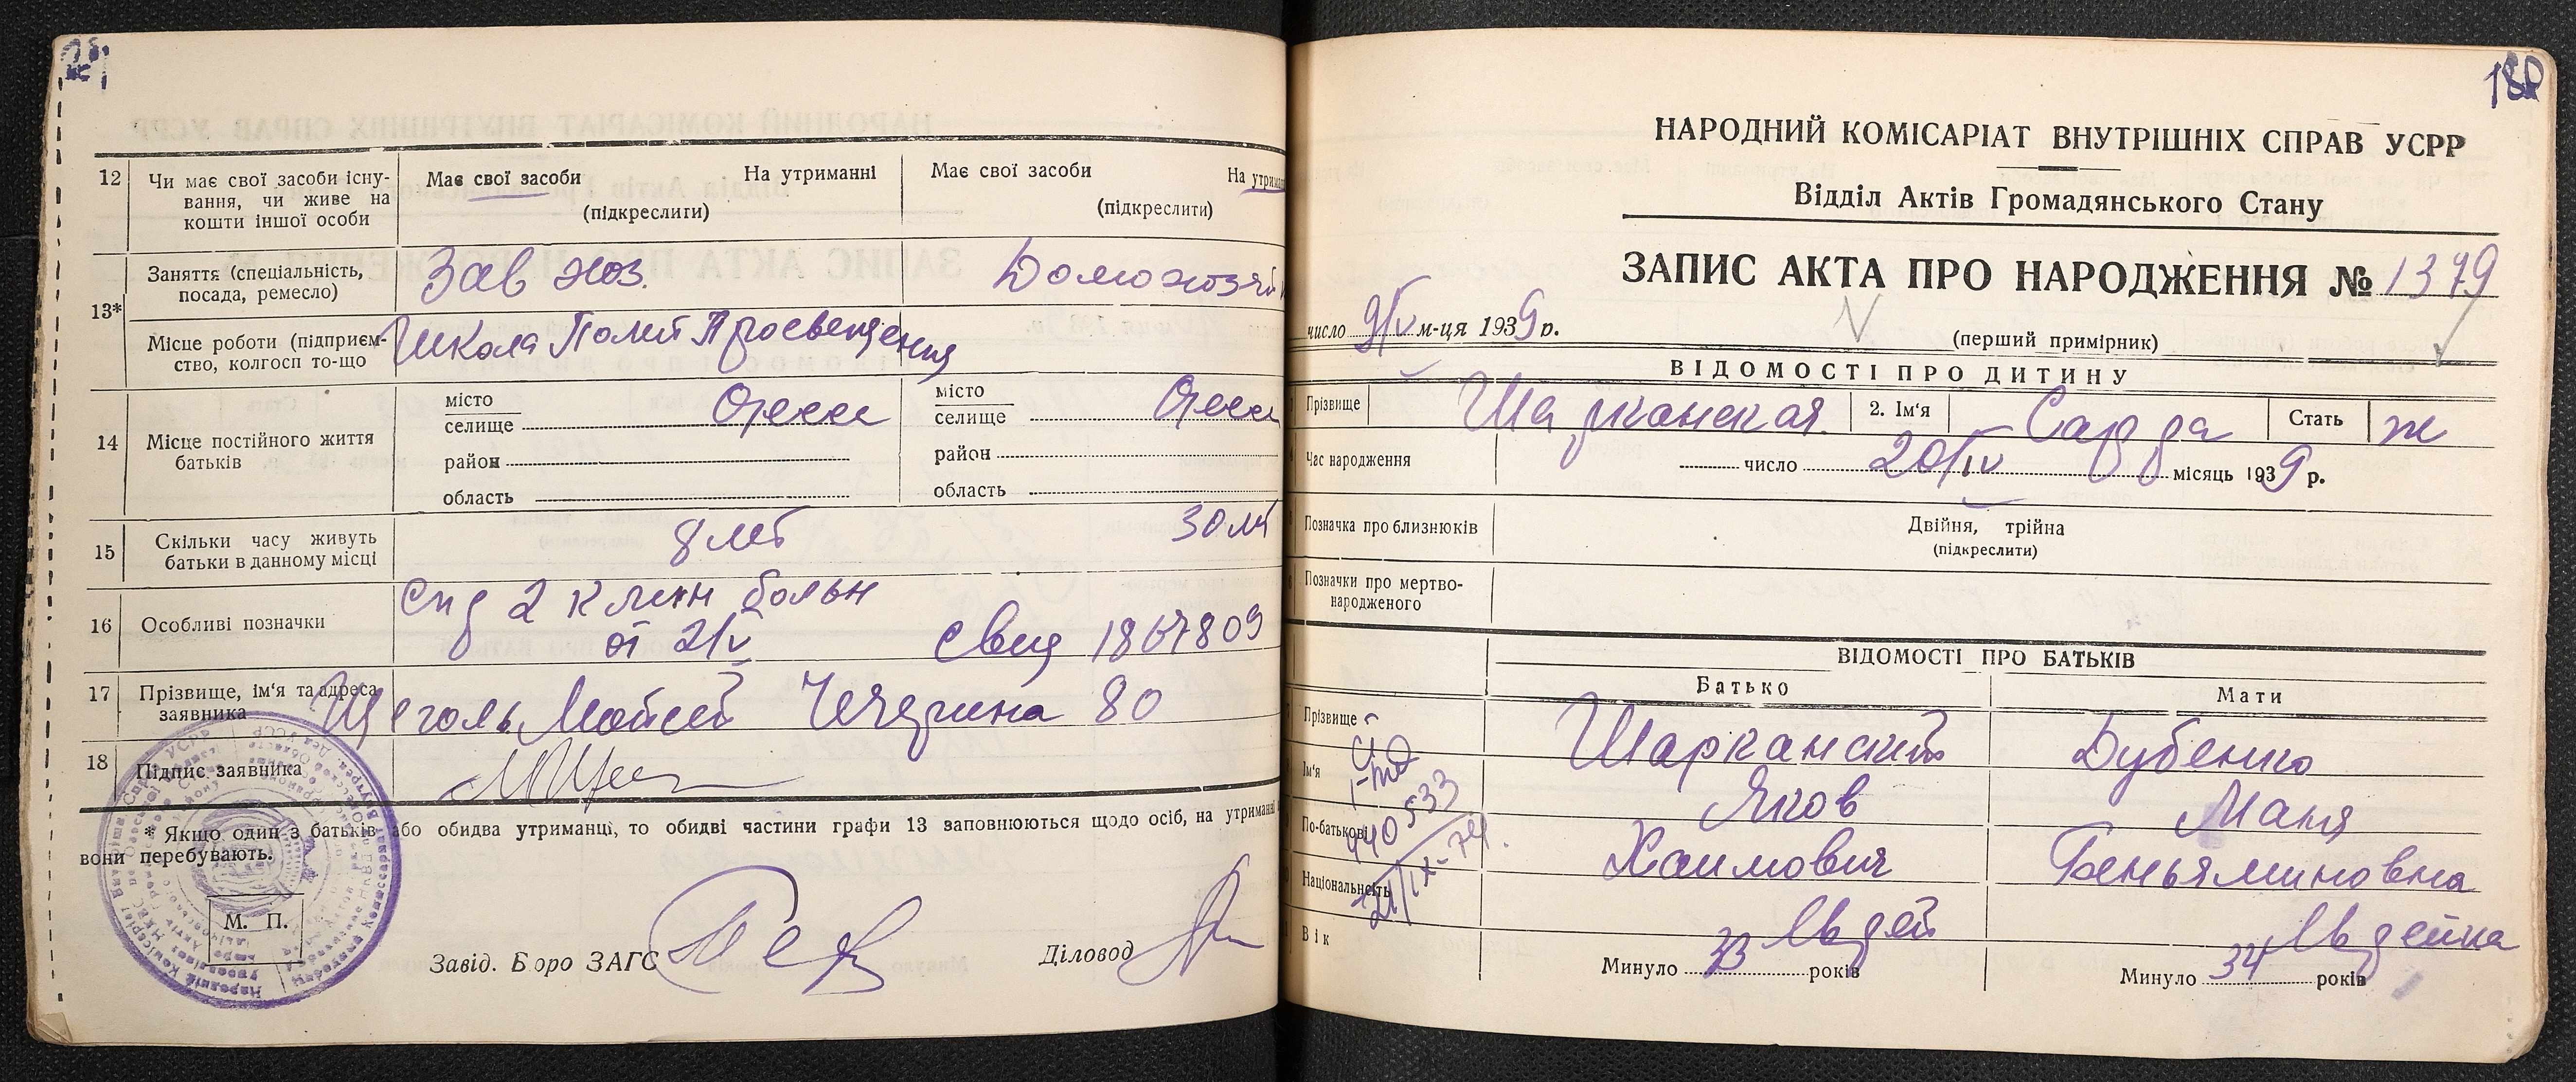 12 Чи має свої засоби існу-
вання, чи живе на
кошти іншої особи
Має свої засоби На утриманні
(підкреслити)
Має свої засоби На утриман
(підкреслити)
13*
Заняття (спеціальність,
посада, ремесло)
Зав хоз. Домохозяй
Місце роботи (підприєм-
ство, колгосп то-що
Школа Полит Просвещения
14 Місце постійного життя
батьків
місто
селище Одесса
район
область
місто
селище Одесса
район
область
15 Скільки часу живуть
батьки в данному місці
8 лет 30 лет
16 Особливі позначки
Спр 2 клин больн
от 2/V свид 1867809
17 Прізвище, ім'я та адреса
заявника
Щеголь Мойсей Чичерина 80
18 Підпис заявника
* Якщо один з батьків або обидва утриманці, то обидві частини графи 13 заповнюються щодо осіб, на утриманні
вони перебувають.
М. П.
Завід. Бюро ЗАГС Діловод
180
НАРОДНИЙ КОМІСАРІАТ ВНУТРІШНІХ СПРАВ УСРР
Відділ Актів Громадянського Стану
ЗАПИС АКТА ПРО НАРОДЖЕННЯ № 1379
число 9/V м-ця 1939 р.
(перший примірник)
ВІДОМОСТІ ПРО ДИТИНУ
Прізвище Шарканская 2. Ім'я Сарра Стать ж
Час народження число 20/IV місяць 1939 р.
Позначка про близнюків
Двійня, трійня
(підкреслити)
Позначки про мертво-
народженого
ВІДОМОСТІ ПРО БАТЬКІВ
Батько Мати
Прізвище Шарканский Дубенко
Ім'я Яков Маня
По-батькові Хаимович Беньяминовна
Національність Иудей Иудейка
Вік Минуло 33 років Минуло 34 років
440533
21/IX-74.